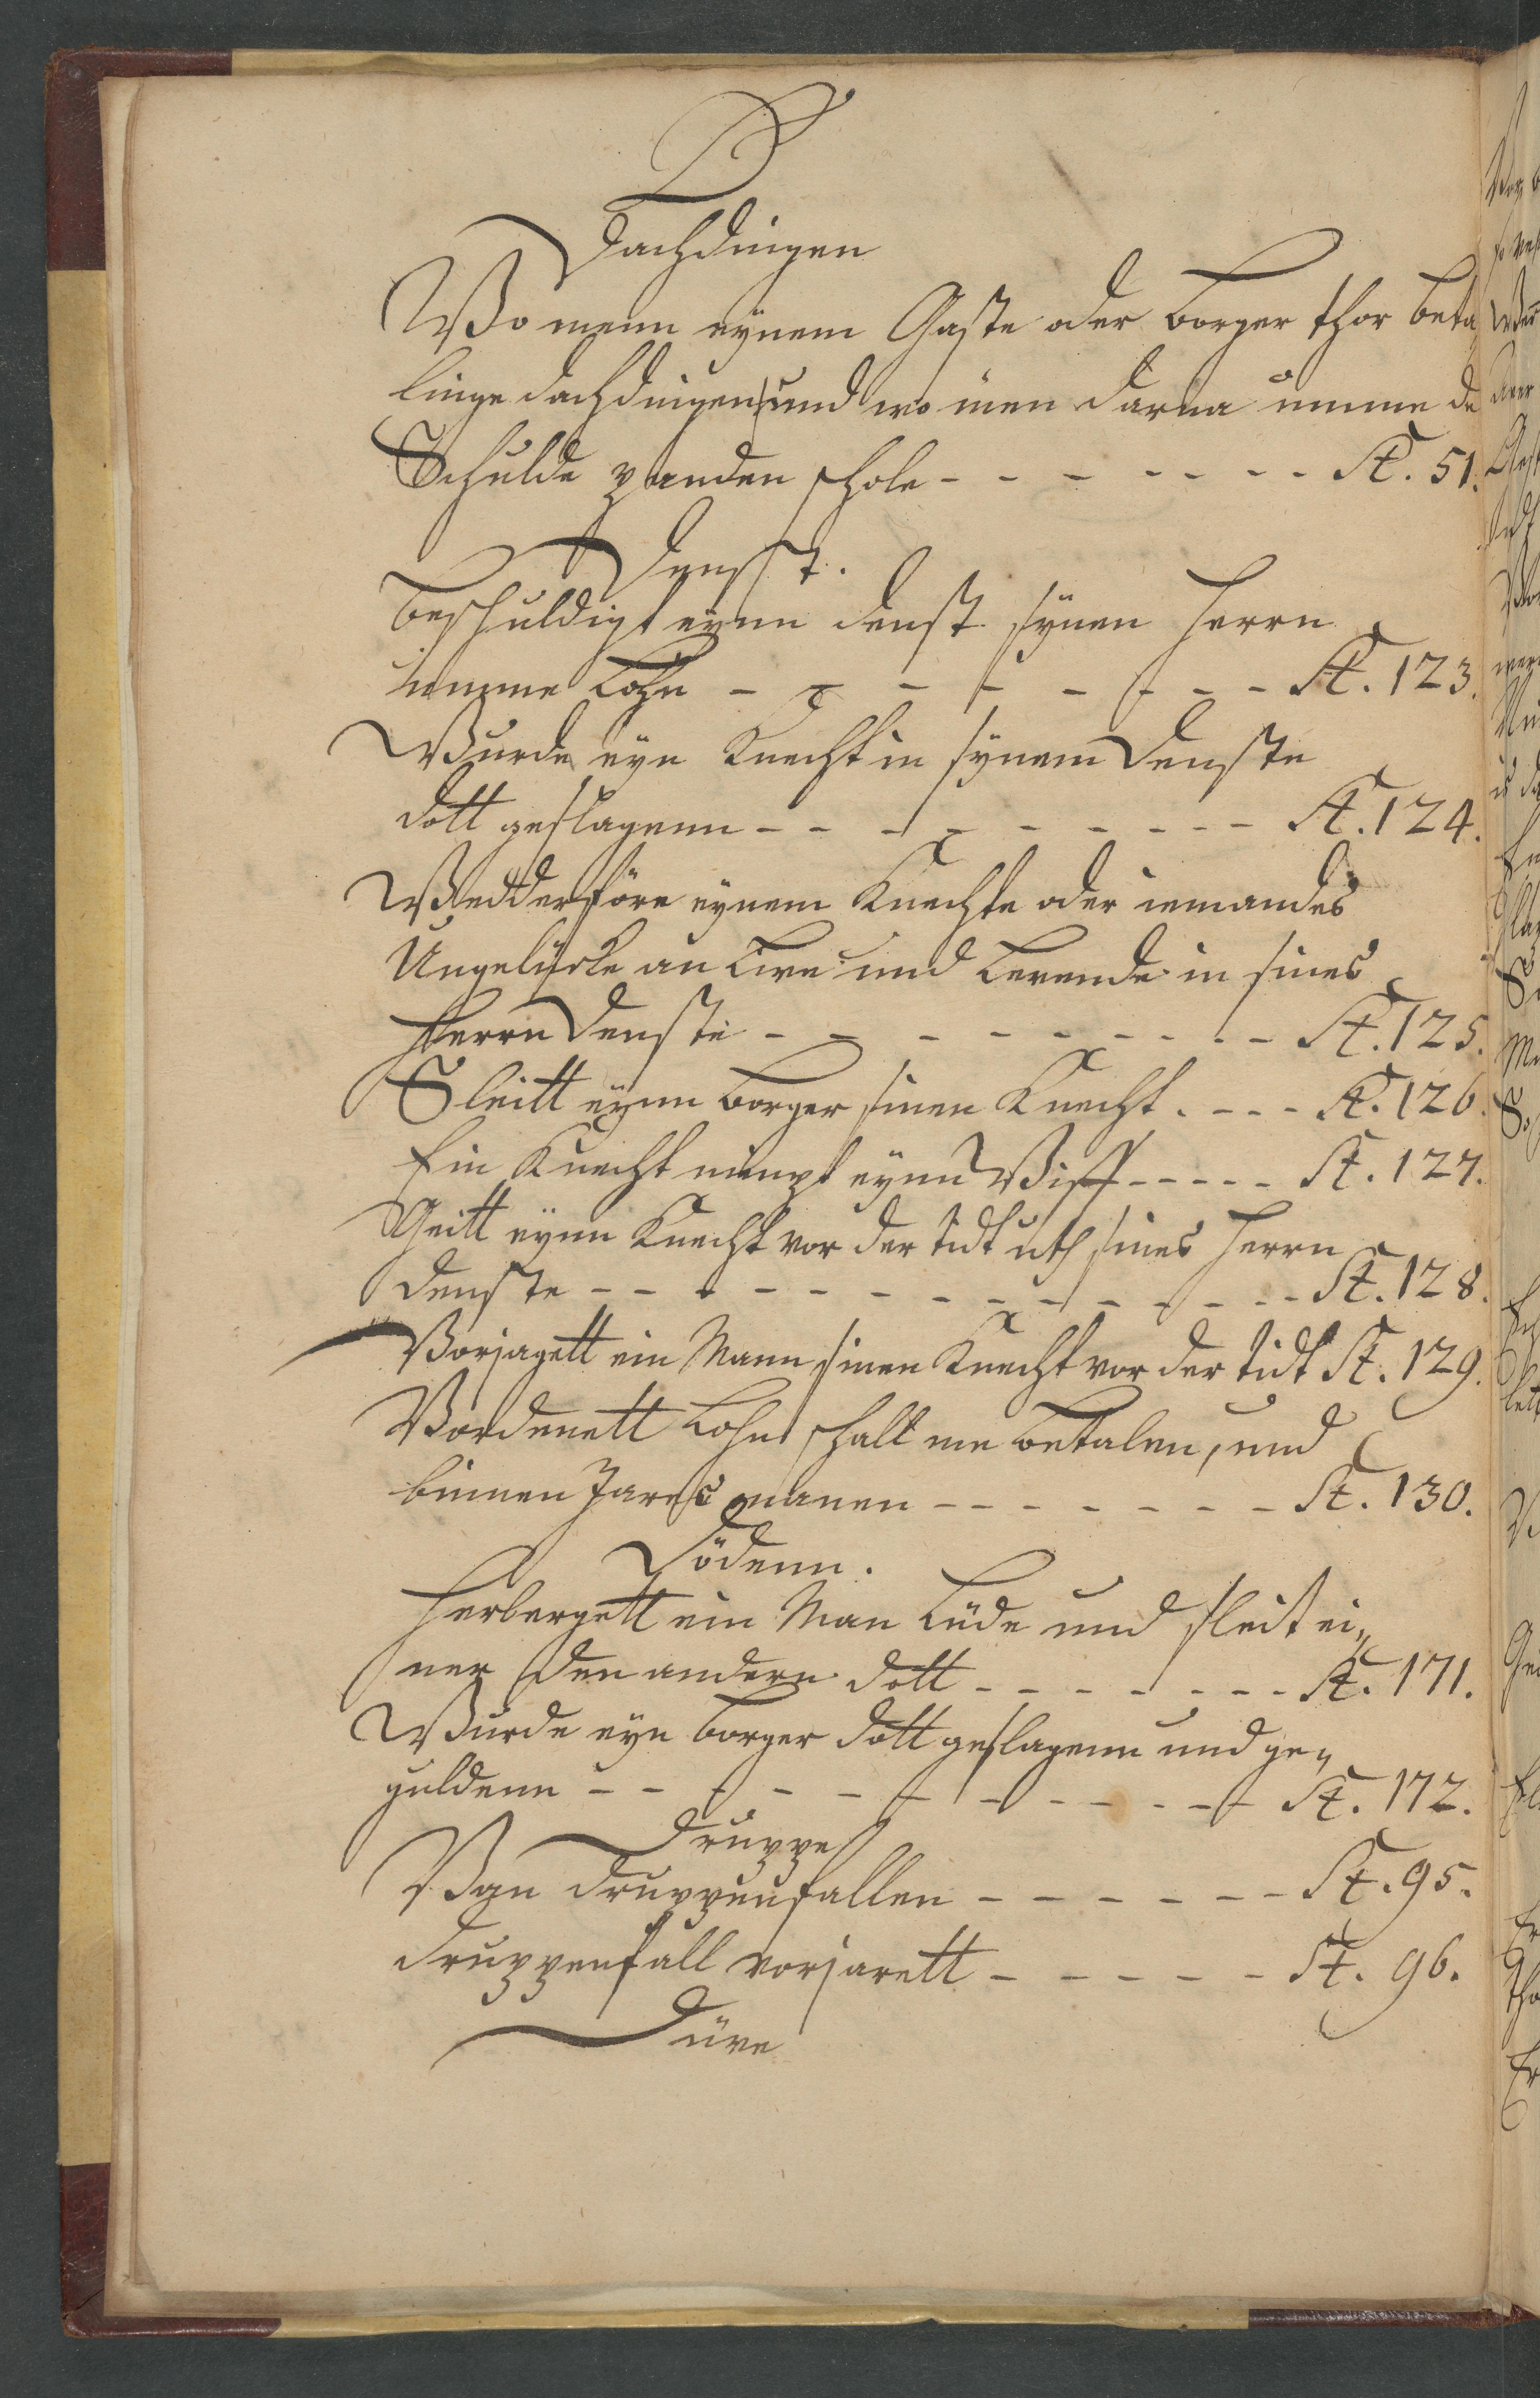 D
Dachdingen
Wo menn eÿnem Gaste oder borger thor beta
linge dachdingen und wo men darna umme de
Schulde panden schole - - - - - - - - St. 51.
Denst.
Beschuldigt eÿnn denst sÿnen Herrn
umme Lohn - - - - - - - - St. 123.
Wurde eÿn Knecht in sÿnem Denste
dott geslagenn - - - - - - - - St. 124.
Wedderföre eÿnem Knechte oder iemandes
Ungelücke an Live und Levende in sines
Herrn Denste - - - - - - - - St. 125.
Sleitt eÿnn borger sinen Knecht - - - - St. 126.
Ein Knecht nimpt eÿnn Wiff - - - - - St. 127.
Geitt eÿnn Knecht vor der tidt uth sines Herrn
denste - - - - - - - - - - - - St. 128.
Vorjagett ein Mann sinen Knecht vor der tidt St. 129.
Vordenett Lohn schall me betalen, und
binnen Jares manen - - - - - - - St. 130.
Dödenn.
Herbergett ein Man Lüde und sleit ei„
ner den andern dott - - - - - - - - St. 171.
Wurde eÿn borger dott geslagenn und ge„
guldenn - - - - - - - - - - - St. 172.
Druppe
Van Druppenfallen - - - - - - St. 95.
Druppenfall vorjarett - - - - - St. 96.
Düve